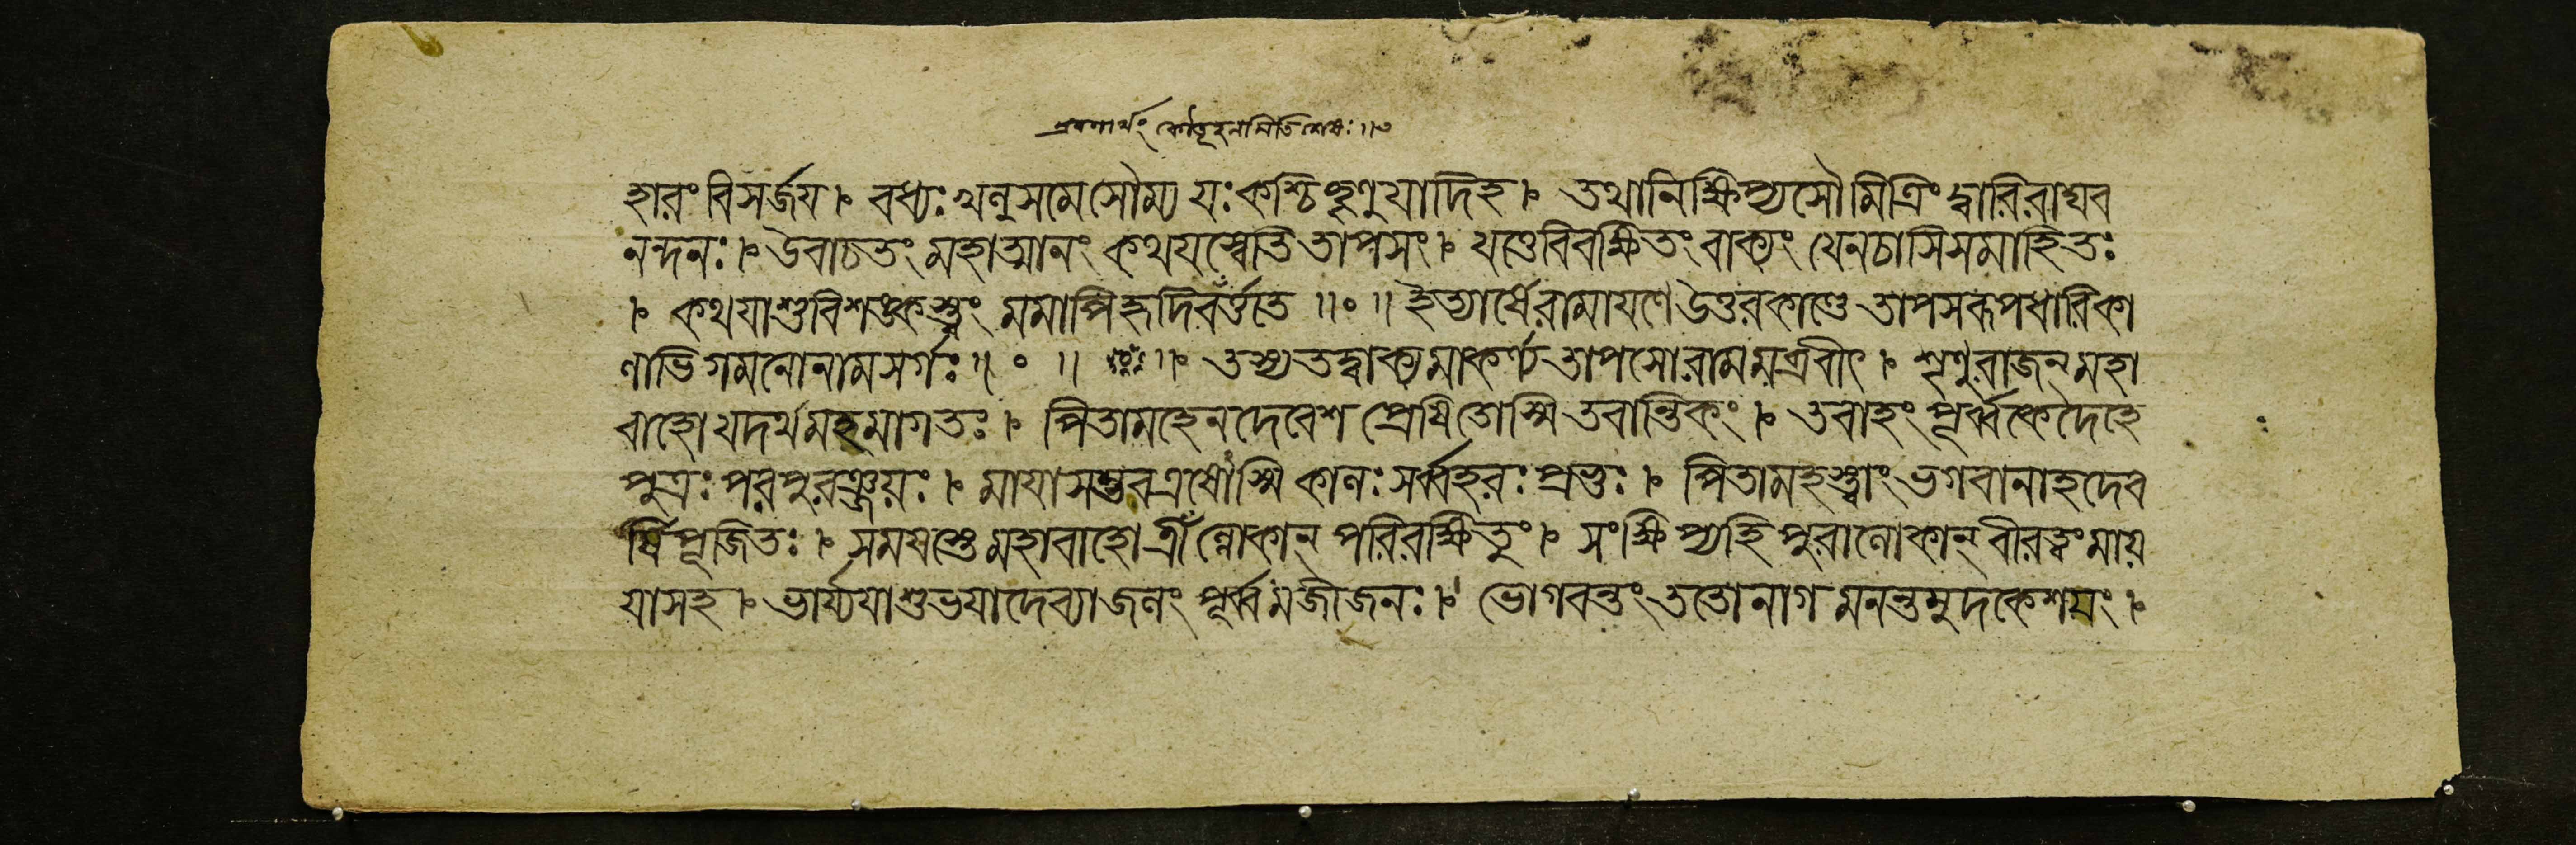 শ্রবণার্থং কৌতূহলমিতিশেষঃ॥৩
হারং বিসর্জয়। বধ্যঃ খলু সমেসৌম্য যঃ কশ্চিচ্ছৃণুযাদিহ। তথানিক্ষিপ্যসৌমিত্রিং দ্বারিরাঘব
নন্দনঃ। উবাচতং মহাত্মানং কথযস্বেতি তাপসং। যত্তেবিবক্ষিতং বাক্যং যেনচাসিসমাহিতঃ
। কথযাশুবিশঙ্কস্ত্বং মমাপিহৃদিবর্ত্ততে ॥॰॥ ইত্যার্ষেরামাযণে উত্তরকাণ্ডে তাপসরূপধারিকা
লাভিগমনোনামসর্গঃ॥॰॥ ॥ তস্যতদ্বাক্যমাকর্ণ্য তাপসোরামমব্রবীৎ। শৃণুরাজন্ মহা
বাহো যদর্থমহমাগতঃ। পিতামহেনদেবেশ প্রেষিতোস্মি তবান্তিকং। তবাহং পূর্ব্বকেদেহে
পুত্রঃ পরপুরঞ্জয়ঃ। মাযাসম্ভবএষোস্মি কালঃ সর্ব্বহরঃ প্রভুঃ। পিতামহস্ত্বাং ভগবানাহদেব
র্ষিপূজিতঃ। সমযস্তে মহাবাহো ত্রীঁল্লোকান্ পরিরক্ষিতুং। সংক্ষিপ্যহি পুরালোকান্ বীরত্বংমায়
যাসহ। ভার্য্যযাশুভযাদেব্যাজলং পূর্ব্বমজীজনঃ। ভোগবন্তং ততোনাগ মনন্তমুদকেশয়ং।